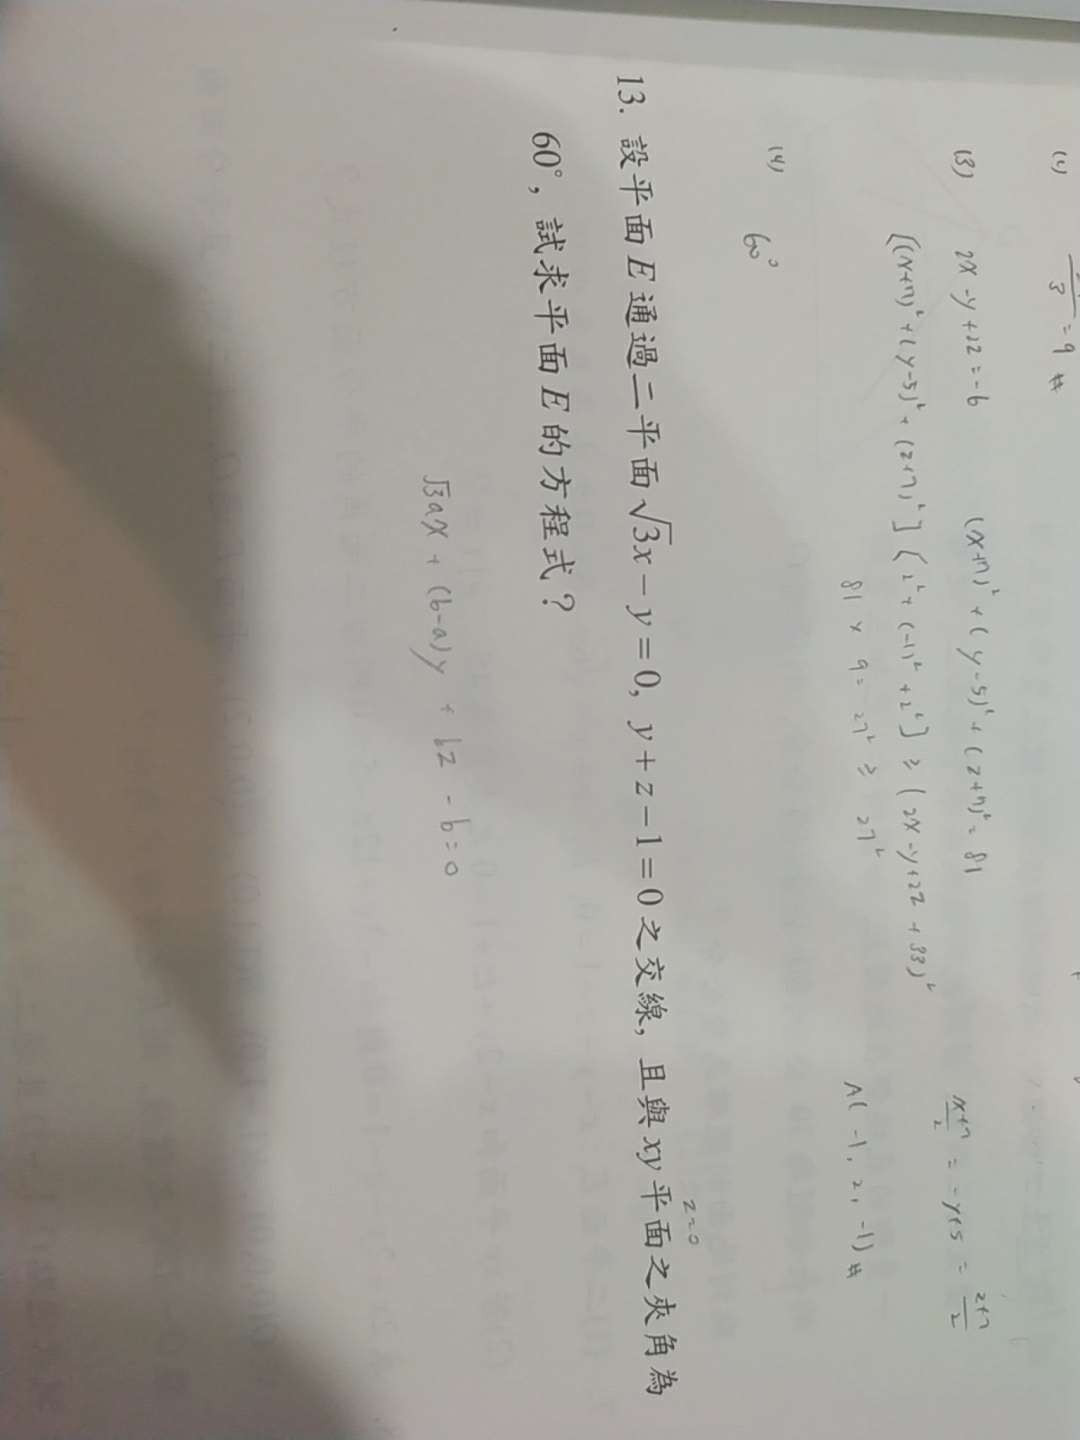 = 9 #
(3) 2x-y+2z=-6 (x+7)²+(y-5)²+(z+7)²=81
[(x+7)²+(y-5)²+(z+7)²][2²+(-1)²+2²] ≥ (2x-y+2z+33)²
81×9=27² ≥ 27²
A(-1, 2, -1) #
(4) 60°
z=0
13. 設平面 E 通過二平面 √3x－y＝0, y＋z－1＝0 之交線, 且與 xy 平面之夾角為
60°, 試求平面 E 的方程式？
√3ax+(b-a)y+bz-b=0